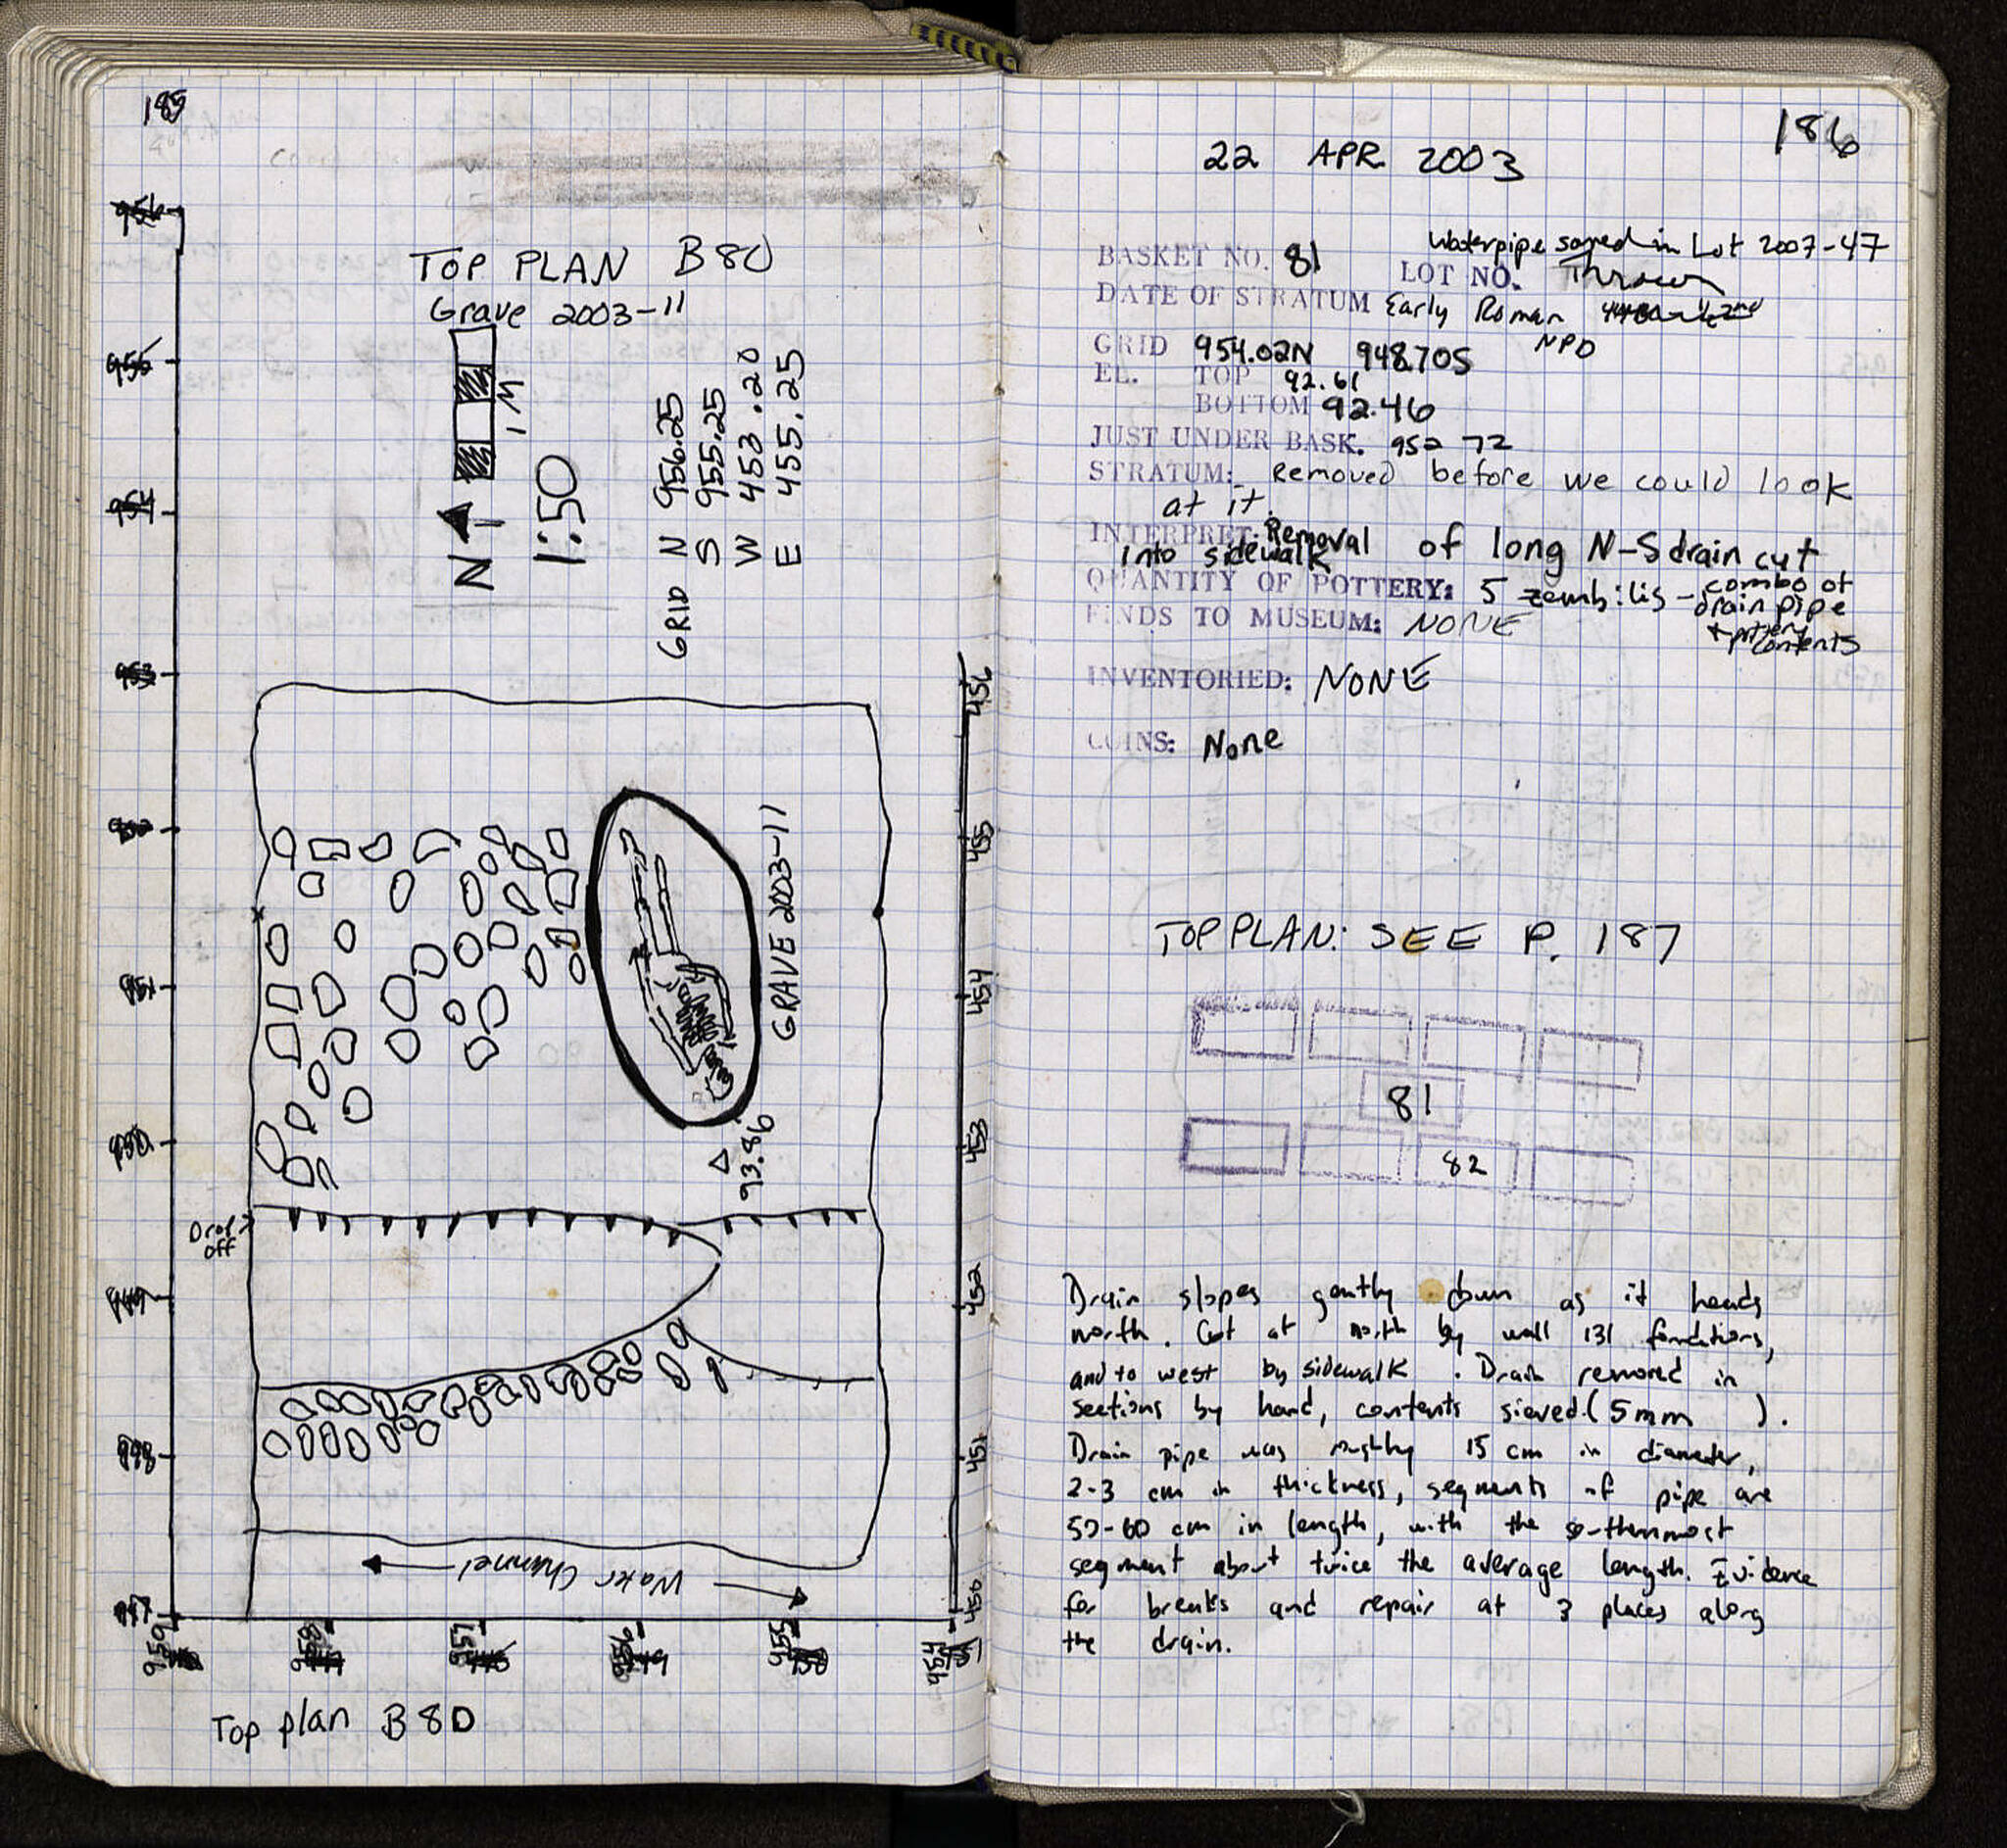 185
TOP PLAN B80
Grave 2003-11
1 M
N
1:50
GRID N 956.25
S 955.25
W 453.20
E 455.25
956
955
954
953
952
951
950
949
948
947
456
455
454
453
452
451
450
GRAVE 2003-11
93.86
Drop off
Water Channel
959
958
957
956
955
954
Top plan B80
186
22 APR 2003
Waterpipe saved in Lot 2007-47
BASKET NO. 81 LOT NO. Thrown
DATE OF STRATUM Early Roman
NPD
GRID 954.02N 948.70S
EL. TOP 92.61
BOTTOM 92.46
JUST UNDER BASK. 952 72
STRATUM: Removed before we could look
at it.
INTERPRET: Removal of long N-S drain cut
into sidewalk
QUANTITY OF POTTERY: 5 zembilis - combo of
drain pipe
+ pottery
contents
FINDS TO MUSEUM: NONE
INVENTORIED: NONE
COINS: None
TOP PLAN: SEE P. 187
81
82
Drain slopes gently down as it heads
north. Cut at north by wall 131 foundations,
and to west by sidewalk. Drain removed in
sections by hand, contents sieved (5mm ).
Drain pipe was roughly 15 cm in diameter,
2-3 cm in thickness, segments of pipe are
50-60 cm in length, with the southernmost
segment about twice the average length. Evidence
for breaks and repair at 3 places along
the drain.